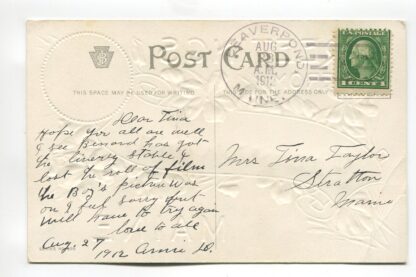 POST CARD
BEAVERPOND
AUG
A.M.
MINN.
1 CENT 1
THIS SPACE MAY BE USED FOR WRITING
Dear Tina
Hope you all are well
I see has got
the livery stable &
lost the roll of film
the B J's picture was
on I feel sorry but
will have to try again
love to all
Aug. 27 1912 Annie
Mrs Tina Taylor
Stratton
Maine